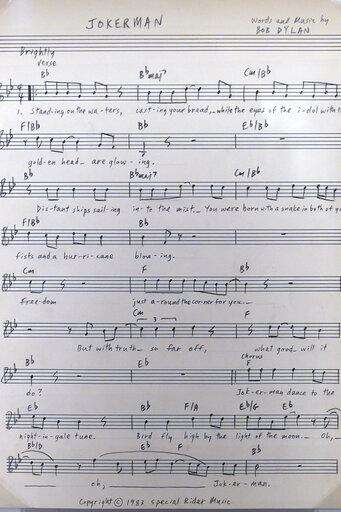 JOKERMAN
Words and Music by
BOB DYLAN
Brightly
verse
Bb Bbmaj7 Cm/Bb
1. Standing on the wa-ters, cast-ing your bread,_ while the eyes of the i-dol with t
F/Bb Bb Eb/Bb
gold-en head_ are glow-ing.
Bb Bbmaj7 Cm/Bb
Dis-tant ships sail-ing in-to the mist_ You were born with a snake in both of y
F/Bb Bb
fists and a hur-ri-cane blow-ing.
Cm F Bb
Free-dom just a-round the corner for you._
Cm F
3
But with truth_ so far off, what good_ will it
Bb Eb Chorus F
do? Jok-er-man dance to the
Eb Bb F/A Eb/G Eb
night-in-gale tune. Bird fly high by the light of the moon._ Oh,_
Bb/D Eb F Bb
oh, Jok-er-man.
Copyright © 1983 Special Rider Music